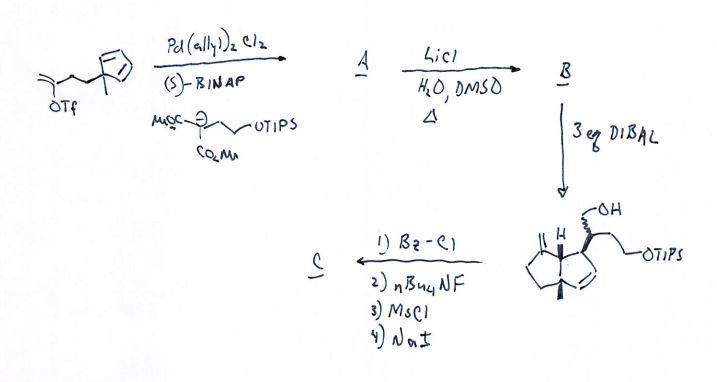 Pd(allyl)₂Cl₂
(S)-BINAP
MeOC
⊖
OTIPS
CO₂Me
OTf
A
LiCl
H₂O, DMSO
Δ
B
3 eq DIBAL
OH
H
OTIPS
H
C
1) Bz-Cl
2) nBu₄NF
3) MsCl
4) NaI